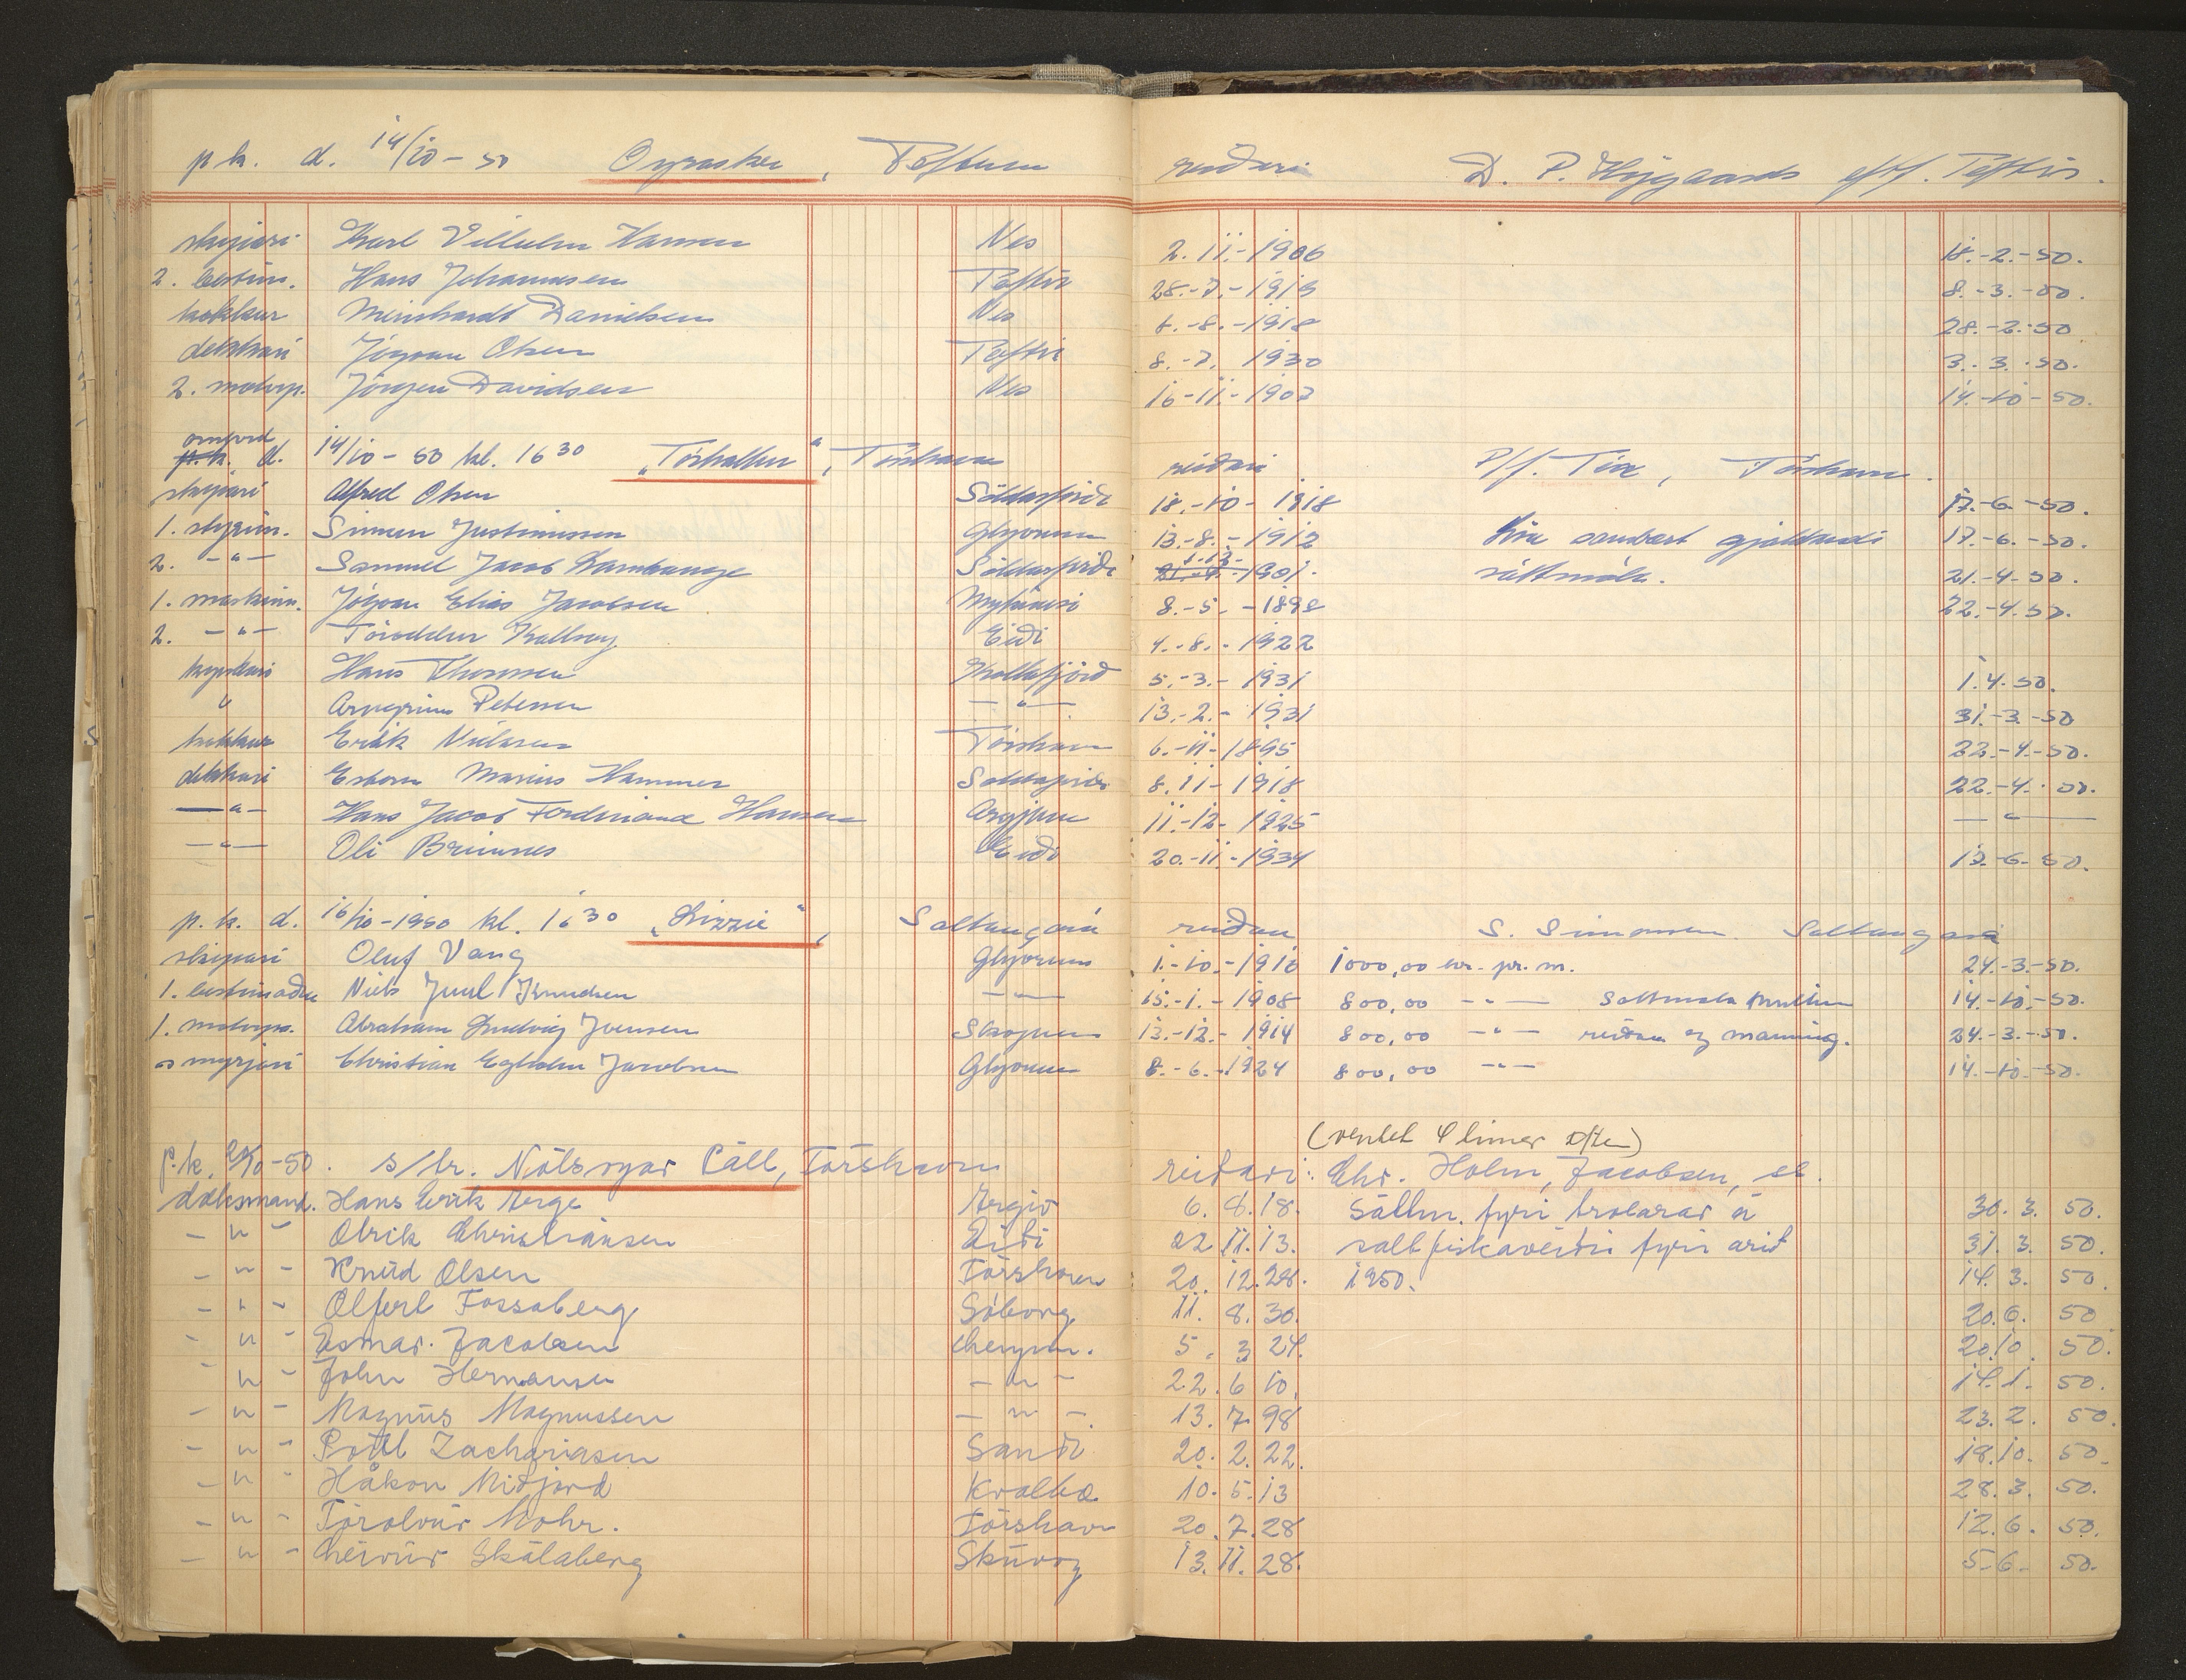 p.k. d. 14/10-50 Oyrasker, Toftum reiðari D. P. Højgaards eftf. Toftir.
skipari Karl Vilhelm Hansen Nes 2.11.-1906 18.-2.-50.
2. bestm. Hans Johannesen Toftir 28.-7.-1915 8.-3.-50.
kokkur Meinhardt Danielsen Nes 6.-8.-1918 28.-2.-50
dekkari Jógvan Olsen Toftir 8.-7. 1930 3.-3.-50.
2. motorp. Jörgen Davidsen Nes 16-11.-1903 14.-10-50.
omford
p.k. d. 14/10-50 kl. 16 30 „Tórhallur“, Tórshavn reiðari P/f. Tór, Tórshavn.
skipari Alfred Olsen Söldarfirði 18.-10-1918 17.-6.-50.
1. stýrim. Simun Justinussen Glyvrum 13.-8.-1912 Hin sambært gjaldandi 17.-6.-50.
2. -"- Samuel Jacob Lambauge Söldarfirði 1.12.-1901. sáttmála. 21.-4-50.
1. maskinm. Jógvan Elias Jacobsen 8.-5.-1898 22.-4.50.
2. -"- Tóroddur Kallsoy Eiði 4.-8.-1922
Hans Thomsen Kollafjörð 5.-3.-1931 1.4.50.
" Arngrimur Petersen -"- 13.-2.-1931 31.-3.-50
kokkur Erikk Nielsen Tórshavn 6.-11-1895 22.-4.-50.
dekkari Esbern Marius Hammer Söldafirði 8.11-1918 22.-4.-50.
-"- Hans Jacob Ferdinand Hansen Argjum 11.-12-1925 -"-
-"- Oli Brimnes Eiði 20.-11.-1934 17.-6.-50.
p.k. d. 16/10-1950 kl. 16 30 „Lizzie“, Saltangará reiðari S. Simonsen Saltangará
skipari Oluf Vang Glyvrum 1.-10.-1916 1000,00 kr. pr. m. 24.-3.-50.
1. bestimaður Niels Juul Knudsen -"- 15.-1.-1908 800,00 -"- Sáttmála millum 14.-10.-50.
1. motorps. Abraham Ludvig Joensen Skopun 13.-12.-1914 800,00 -"- reiðara og manning. 24.-3.-50.
smyrjari Christian Egholm Jacobsen Glyvrum 8.-6.-1924 800,00 -"- 14.-10.-50.
(ventet 4 timer efter)
p.k. 20/10-50. s/tr. Nólsoyar Páll, Tórshavn reiðari: Chr. Holm, Jacobsen, st.
dæksmand. Hans Eirik Arge Argir 6. 8.18. Sáttm. fyri trolarar á 30. 3. 50.
-"- Olrik Christiansen Eiði 22 11.13. saltfiskaveiði fyri árið 31. 3. 50.
-"- Knúd Olsen Tórshavn 20. 12.28. 1950. 14. 3. 50.
-"- Olferl Fossaberg Söborg 11. 8.30. 20.6. 50
-"- Esmar. Jacobsen 5. 3 24. 20.10. 50.
-"- John Hermansen -"- 22.6 10. 14.1. 50.
-"- Magnus Magnussen -"- 13.7.98 23.2. 50.
-"- Poull Zachariasen Sandi 20.2.22. 18.10. 50.
-"- Håkon Miðjord Kvalba 10.5.13 28.3. 50.
-"- Tórolvur Mohr. Tórshavn 20.7.28 12.6. 50.
-"- Leivur Skálaberg Skúvoy 13.11.28. 5-6- 50.